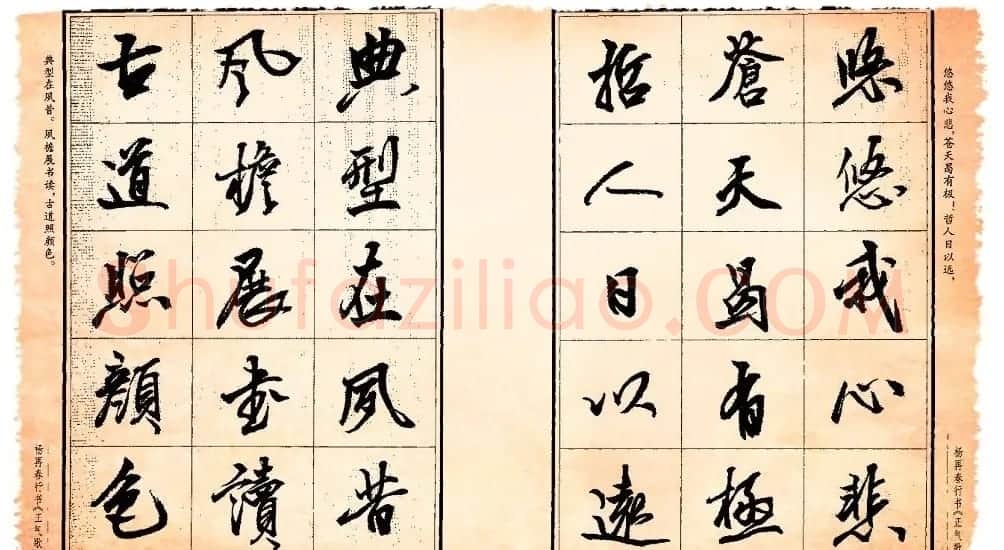 悠悠我心悲,苍天曷有极!哲人日以远,
杨再春行书《正气歌
悠悠我心悲
蒼天曷有極
哲人日以遠
典型在夙昔
風檐展書讀
古道照顔色
典型在夙昔。风檐展书读,古道照颜色。
杨再春行书《正气歌
Shufaziliao.COM